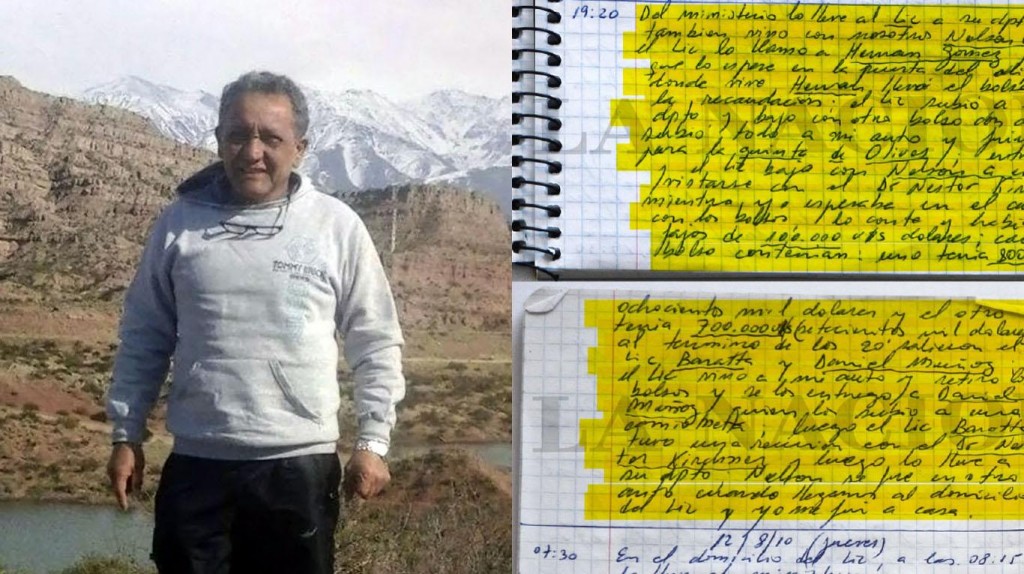 TOMMY
19:20 Del ministerio lo lleve al Lic a su dpto
tambien vino con nosotros Nelson
el Lic lo llamo a Hernan Gomez
que lo espere en la puerta del
donde vive Hernan llevó el bolso
la recaudación: el Lic subio a
dpto y bajo con otro bolso con
subio todo a mi auto y
para la quinta de Olivos y
el Lic bajo con Nelson a
en el Dr Nestor
mientras yo esperaba en el
con los bolsos lo conte y habia
fajos de 100.000 U$S dolares;
bolso contenian: uno tenia 800
LA NACION
ochocientos mil dolares y el otro
tenia 700.000 U$S (setecientos mil dolares
al termino de los 20' salieron el
Lic Baratta y Daniel Muñoz
el Lic vino a mi auto y retiro los
bolsos y se los entrego a Daniel
Muñoz quien los subio a una
camioneta, luego el Lic Baratta
tuvo una reunion con el Dr Nes-
tor Kirchner, luego lo lleve a
su dpto Nelson se fue en otro
auto cuando llegamos al domicilio
del Lic y yo me fui a casa.
LA NACION
12/8/10 (jueves)
07:30 En el domicilio del Lic, a las 08:15
lo lleve al ministerio